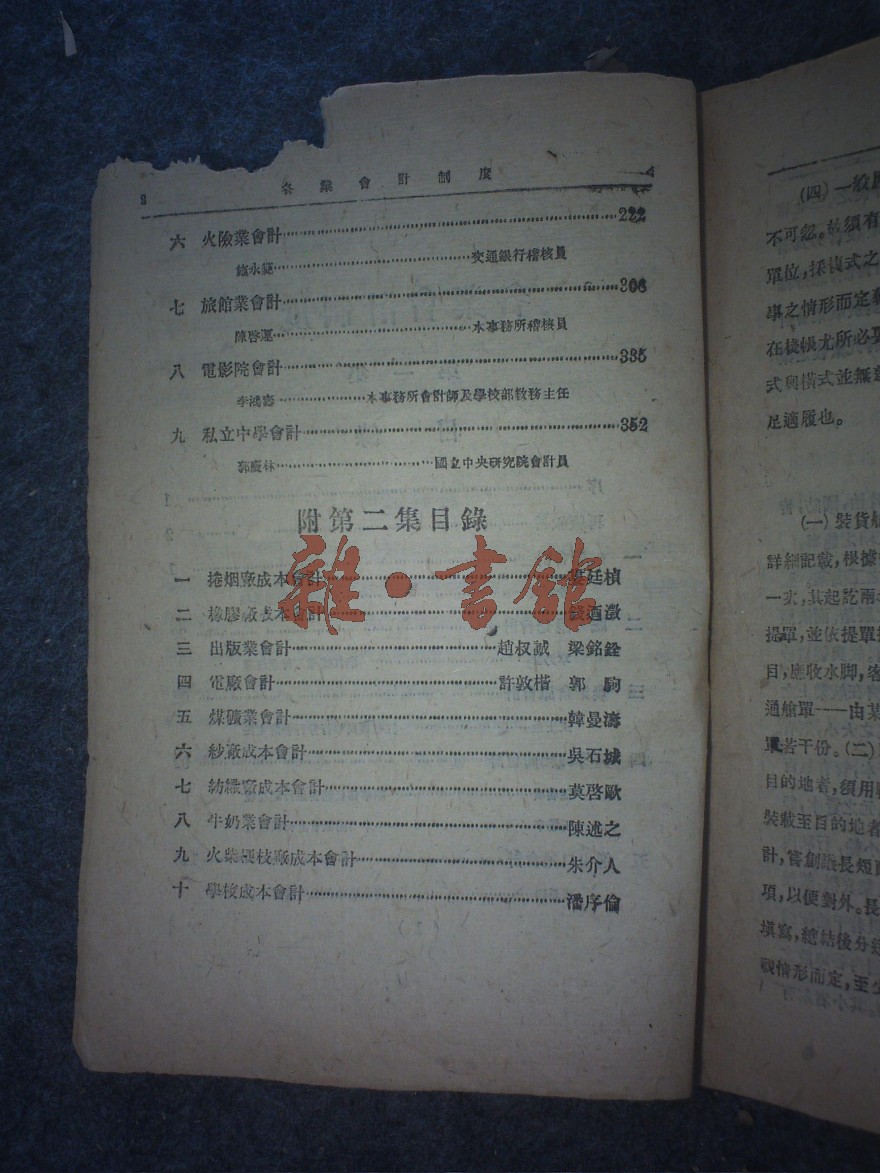 各業會計制度
六 火險業會計 222
交通銀行稽核員
七 旅館業會計 306
陳啓運 本事務所稽核員
八 電影院會計 335
李鴻壽 本事務所會計師及學校部教務主任
九 私立中學會計 352
郭慶林 國立中央研究院會計員
附第二集目錄
一 捲烟廠成本會計 廷楨
二 橡膠廠成本會計 迺澂
三 出版業會計 趙叔誠 梁銘銓
四 電廠會計 許敦楷 郭駒
五 煤礦業會計 韓曼濤
六 紗廠成本會計 吳石城
七 紡織廠成本會計 莫啓歐
八 牛奶業會計 陳述之
九 火柴梗枝廠成本會計 朱介人
十 學校成本會計 潘序倫
雜·書館
(四)一般
不可忽。故須有
單位,採複式之
事之情形而定
在棧帳尤所必
式與橫式並無
足適履也。
(一)裝貨
詳細記載,根據
一次,其起訖兩
提單,並依提單
目,應收水脚,客
通艙單——由某
單若干份。(二)
目的地者,須用
裝載至目的地者
計,嘗創議長短
項,以便對外。長
填寫,總結後分
視情形而定,至少